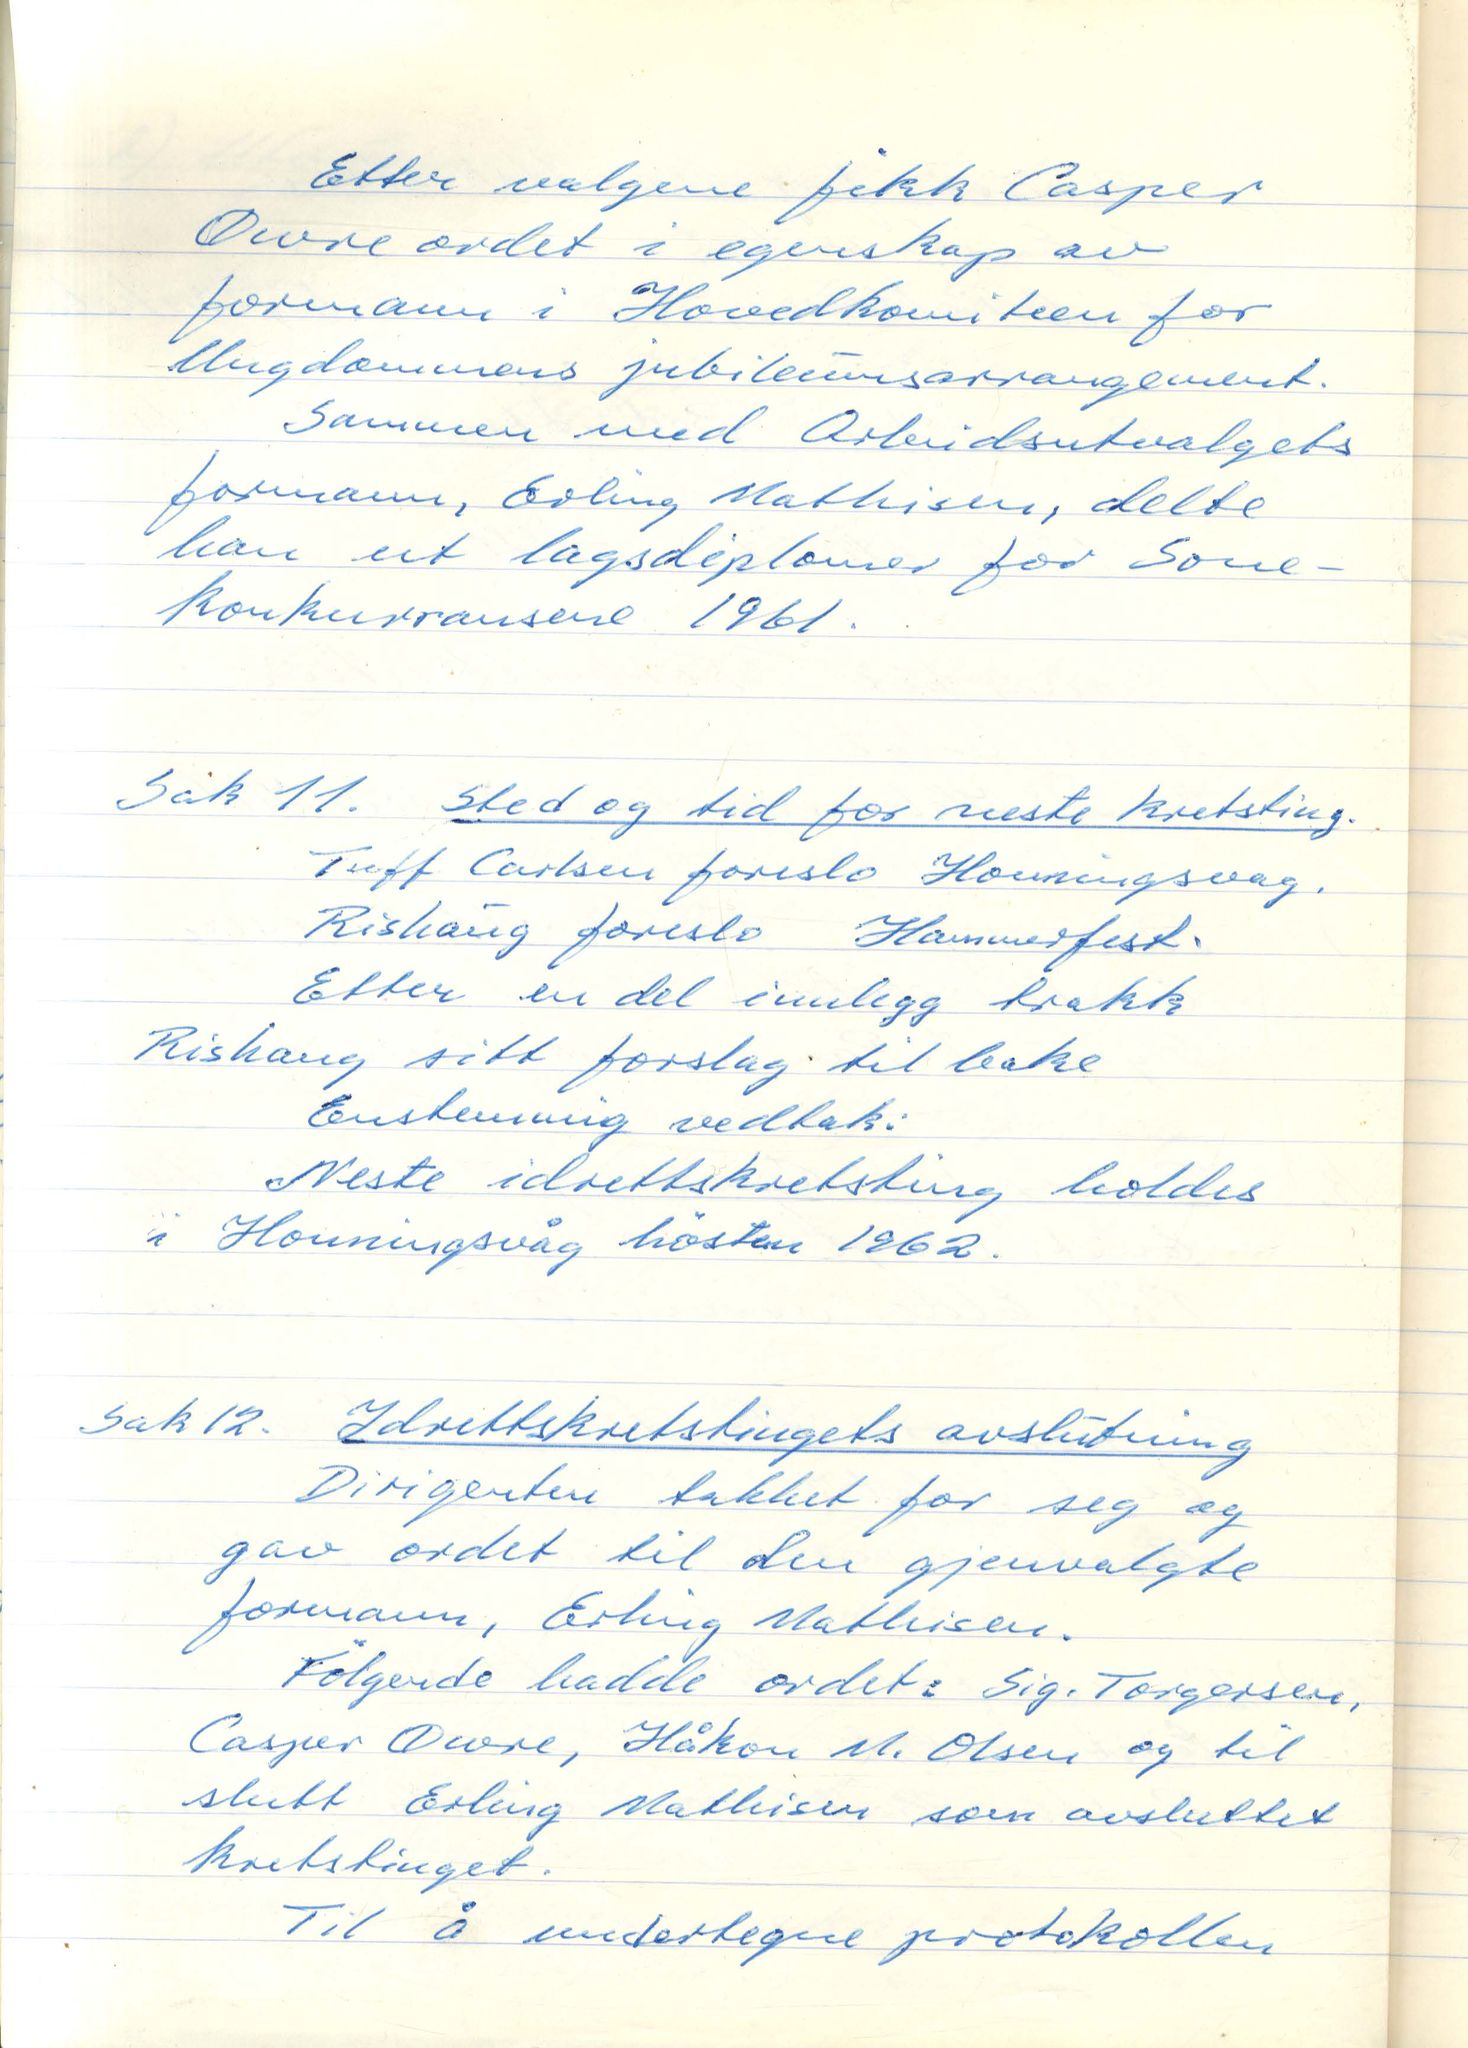 Etter valgene fikk Casper
Owre ordet i egenskap av
formann i Hovedkomiteen for
Ungdommens jubileumsarrangement.
Sammen med Arbeidsutvalgets
formann, Erling Mathisen, delte
han ut lagsdiplomer for Sone-
konkurransene 1961.
Sak 11. Sted og tid for neste kretsting.
Tuff Carlsen foreslo Honningsvåg.
Rishaug foreslo Hammerfest.
Etter en del innlegg trakk
Rishaug sitt forslag til bake
Enstemmig vedtak:
Neste idrettskretsting holdes
i Honningsvåg hösten 1962.
Sak 12. Idrettskretstingets avslutning
Dirigenten takket for seg og
gav ordet til den gjenvalgte
formann, Erling Mathisen.
Fölgende hadde ordet: Sig. Torgersen,
Casper Owre, Håkon M. Olsen og til
slutt Erling Mathisen som avsluttet
kretstinget.
Til å undertegne protokollen